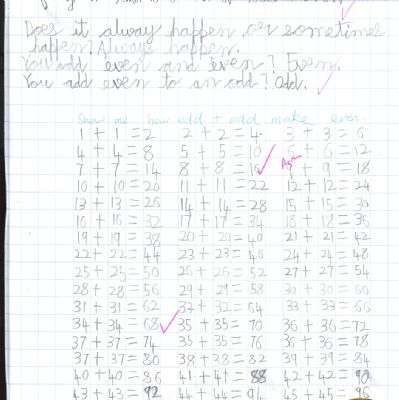 Does it always happen or sometimes
happen? Always happen.
You add even and even? Even.
You add even to an odd? Odd.
Show me how odd + odd make even.
1 + 1 = 2 2 + 2 = 4. 3 + 3 = 6
4 + 4 = 8 5 + 5 = 10 6 + 6 = 12
7 + 7 = 14 8 + 8 = 16 9 + 9 = 18
10 + 10 = 20 11 + 11 = 22 12 + 12 = 24
13 + 13 = 26 14 + 14 = 28 15 + 15 = 30
16 + 16 = 32 17 + 17 = 34 18 + 18 = 36
19 + 19 = 38 20 + 20 = 40 21 + 21 = 42
22 + 22 = 44 23 + 23 = 46 24 + 24 = 48
25 + 25 = 50 26 + 26 = 52 27 + 27 = 54
28 + 28 = 56 29 + 29 = 58 30 + 30 = 60
31 + 31 = 62 32 + 32 = 64 33 + 33 = 66
34 + 34 = 68 35 + 35 = 70 36 + 36 = 72
37 + 37 = 74 35 + 35 = 76 36 + 36 = 78
37 + 37 = 80 38 + 38 = 82 39 + 39 = 84
40 + 40 = 86 41 + 41 = 88 42 + 42 = 90
43 + 43 = 92 44 + 44 = 94 45 + 45 = 96